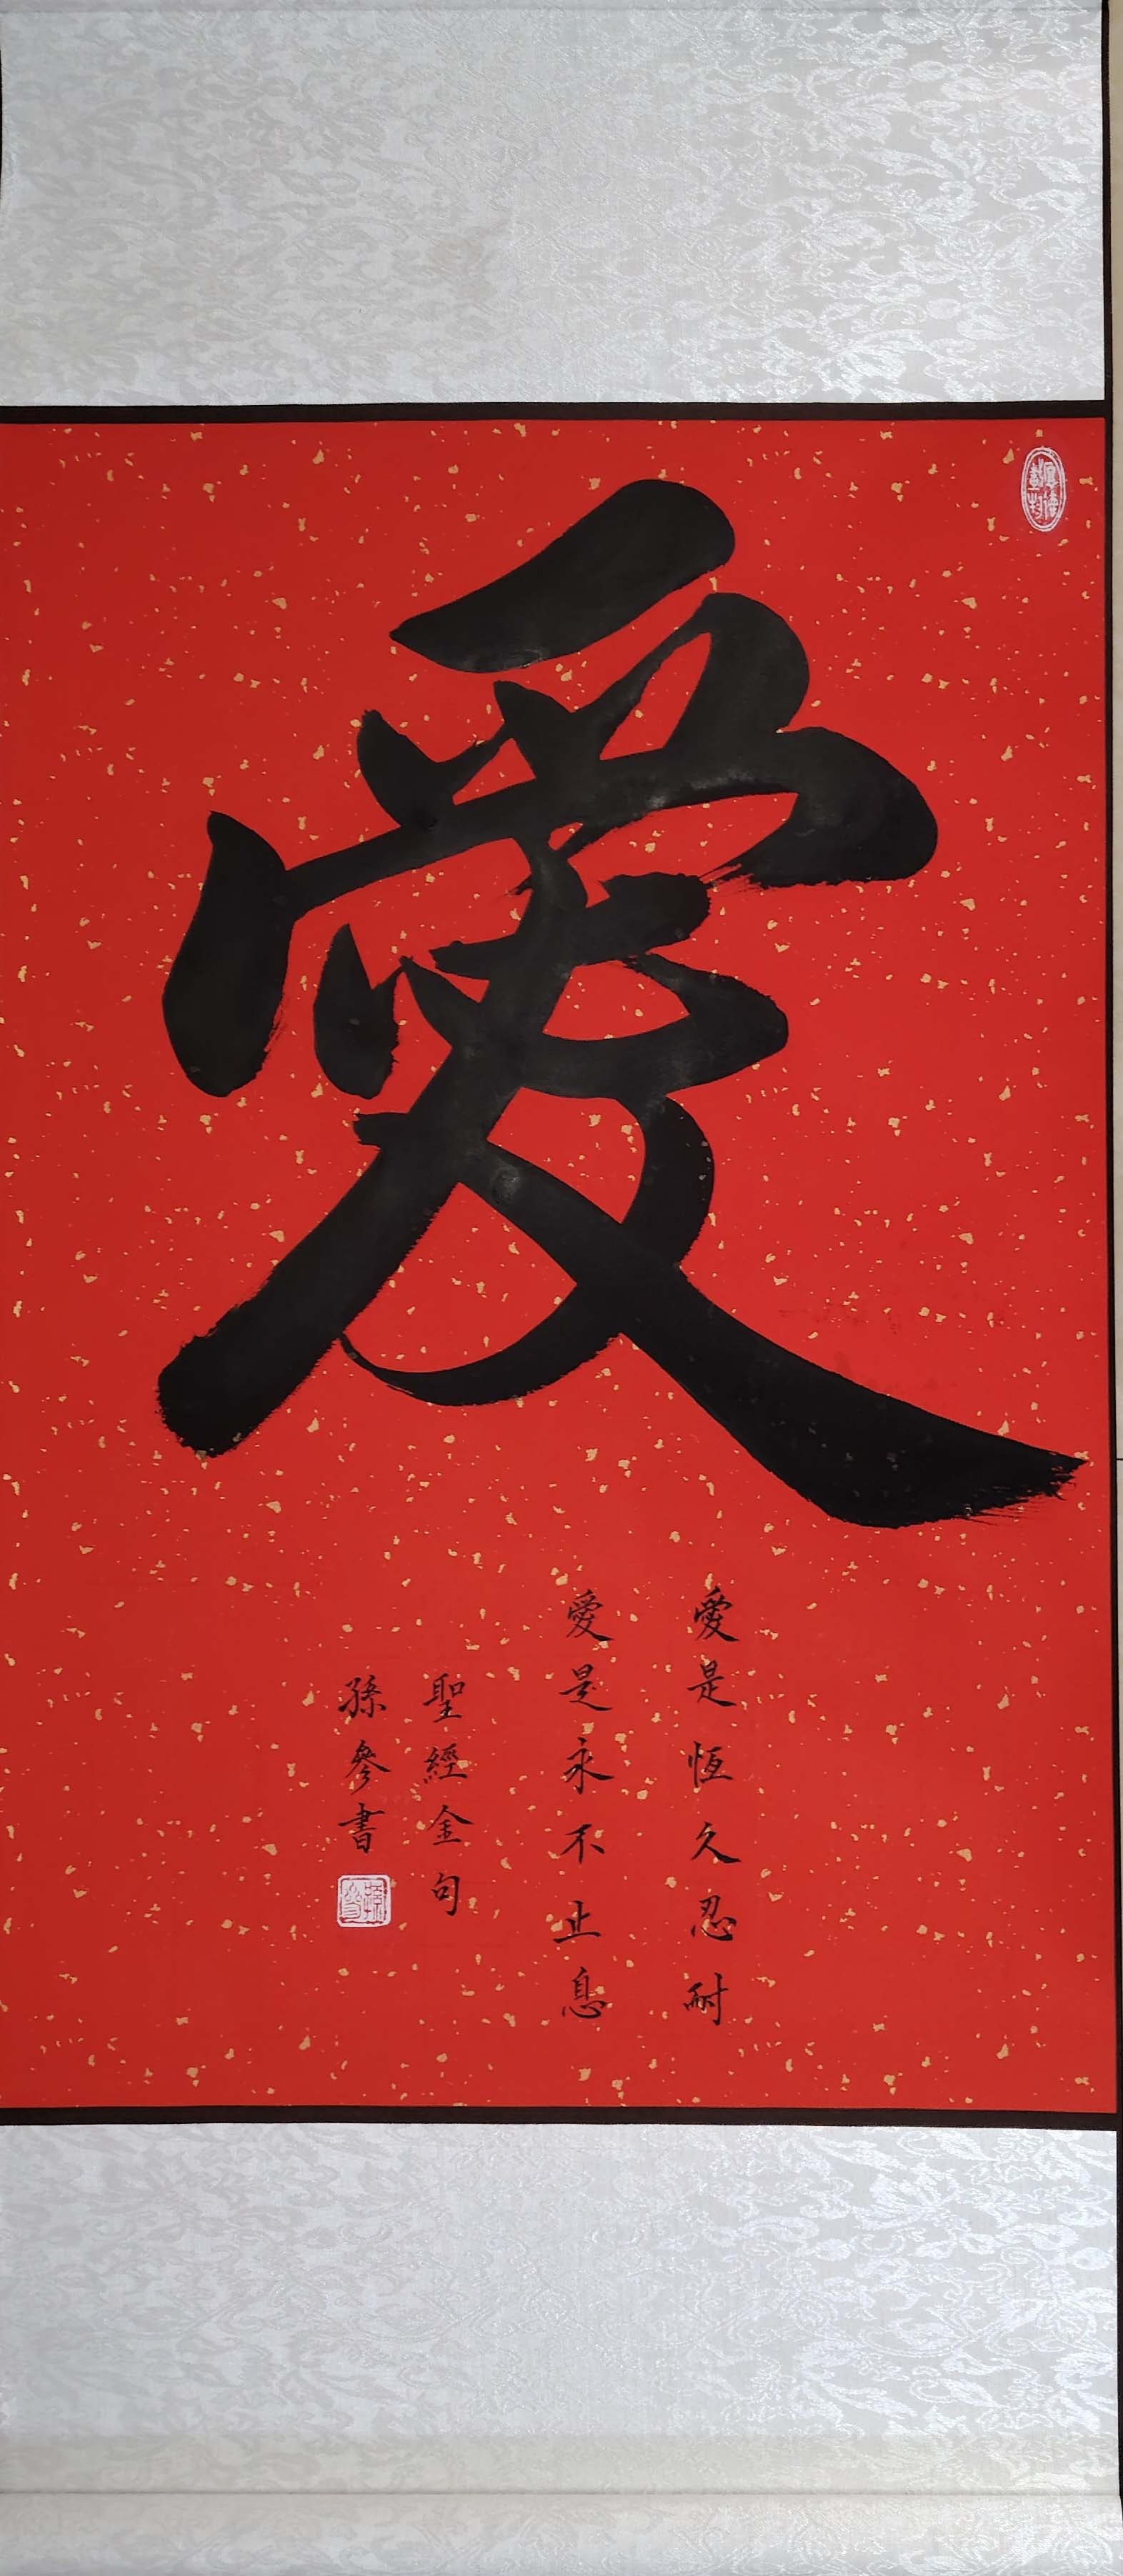 愛
愛是恆久忍耐
愛是永不止息
聖經金句
孫參書